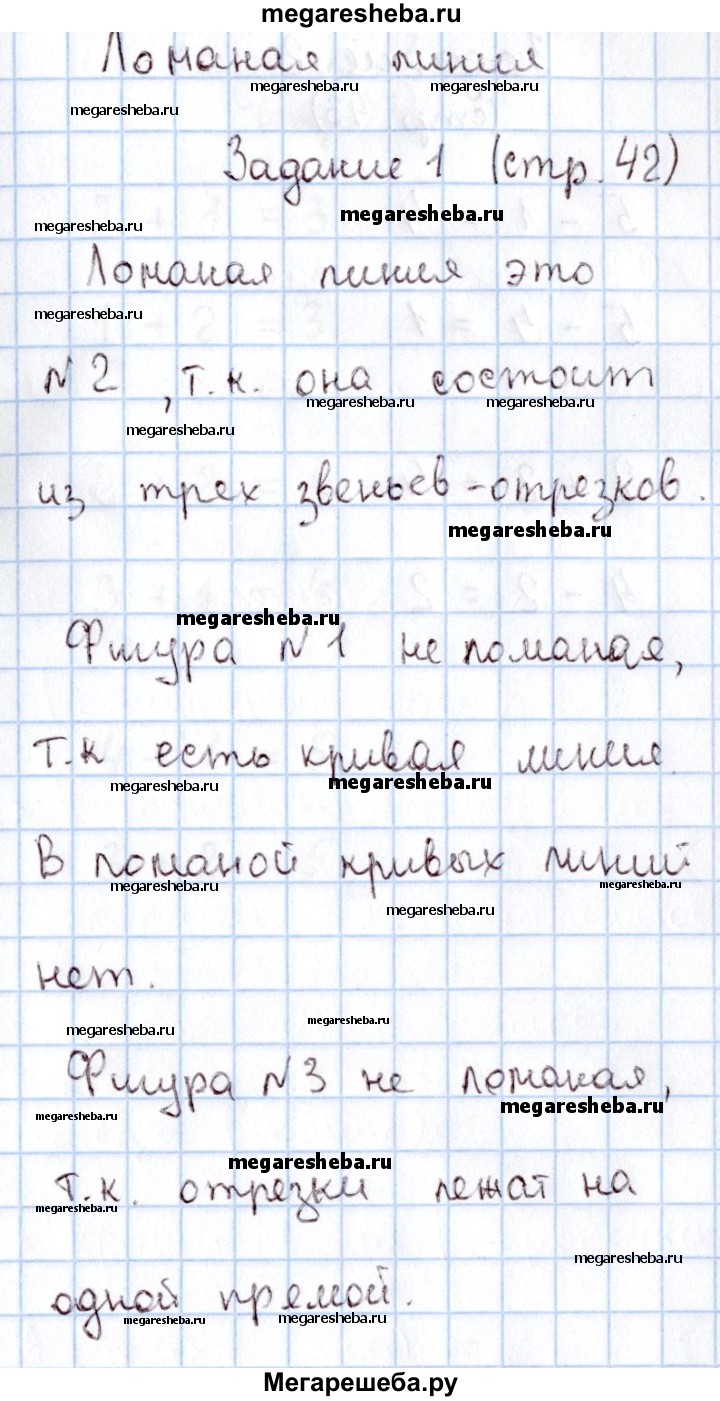 megaresheba.ru
Ломаная линия
megaresheba.ru megaresheba.ru
megaresheba.ru
Задание 1 (стр. 42)
megaresheba.ru
megaresheba.ru
Ломаная линия это
megaresheba.ru
№2, т.к. она состоит
megaresheba.ru megaresheba.ru
megaresheba.ru
из трех звеньев-отрезков.
megaresheba.ru
megaresheba.ru
Фигура №1 не ломаная,
т.к есть кривая линия.
megaresheba.ru megaresheba.ru
В ломаной кривых линий
megaresheba.ru megaresheba.ru
megaresheba.ru
нет.
megaresheba.ru megaresheba.ru
Фигура №3 не ломаная,
megaresheba.ru megaresheba.ru
megaresheba.ru
т.к. отрезки лежат на
megaresheba.ru
megaresheba.ru
одной прямой.
megaresheba.ru megaresheba.ru
Мегарешеба.ру